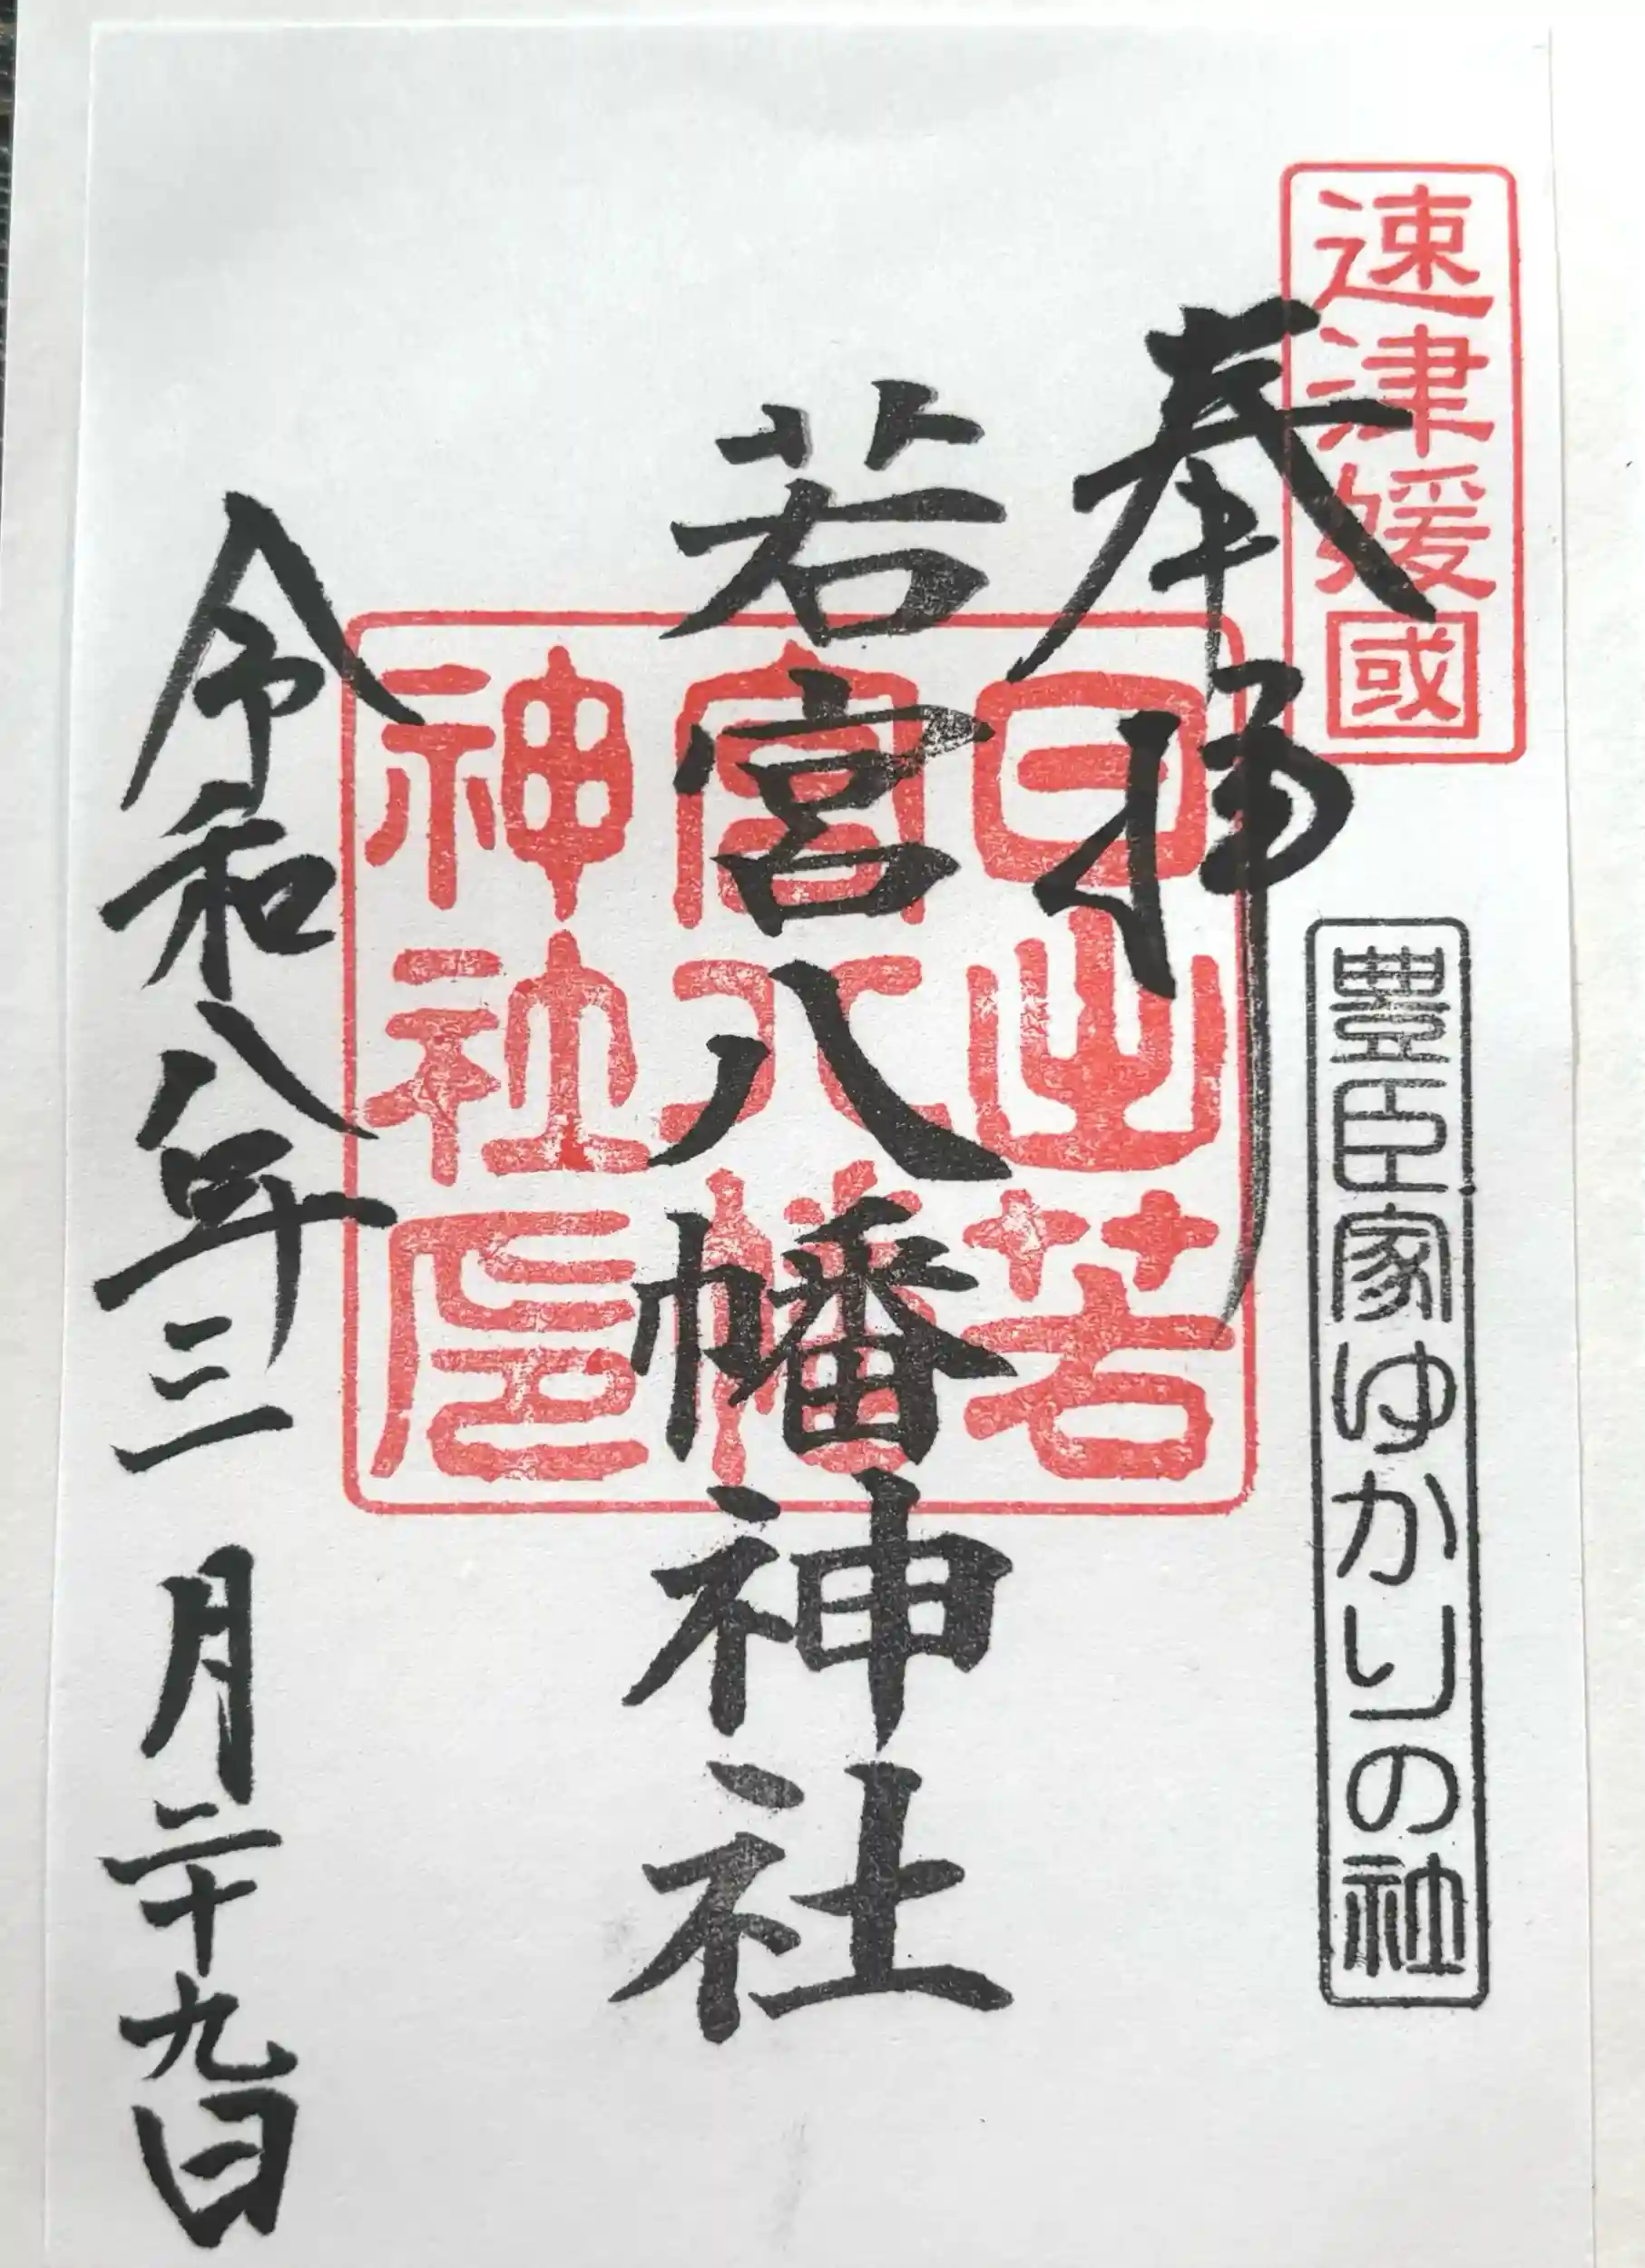 速津媛國
奉拝
豊臣家ゆかりの社
若宮八幡神社
日出若
宮八幡
神社印
令和八年三月二十九日